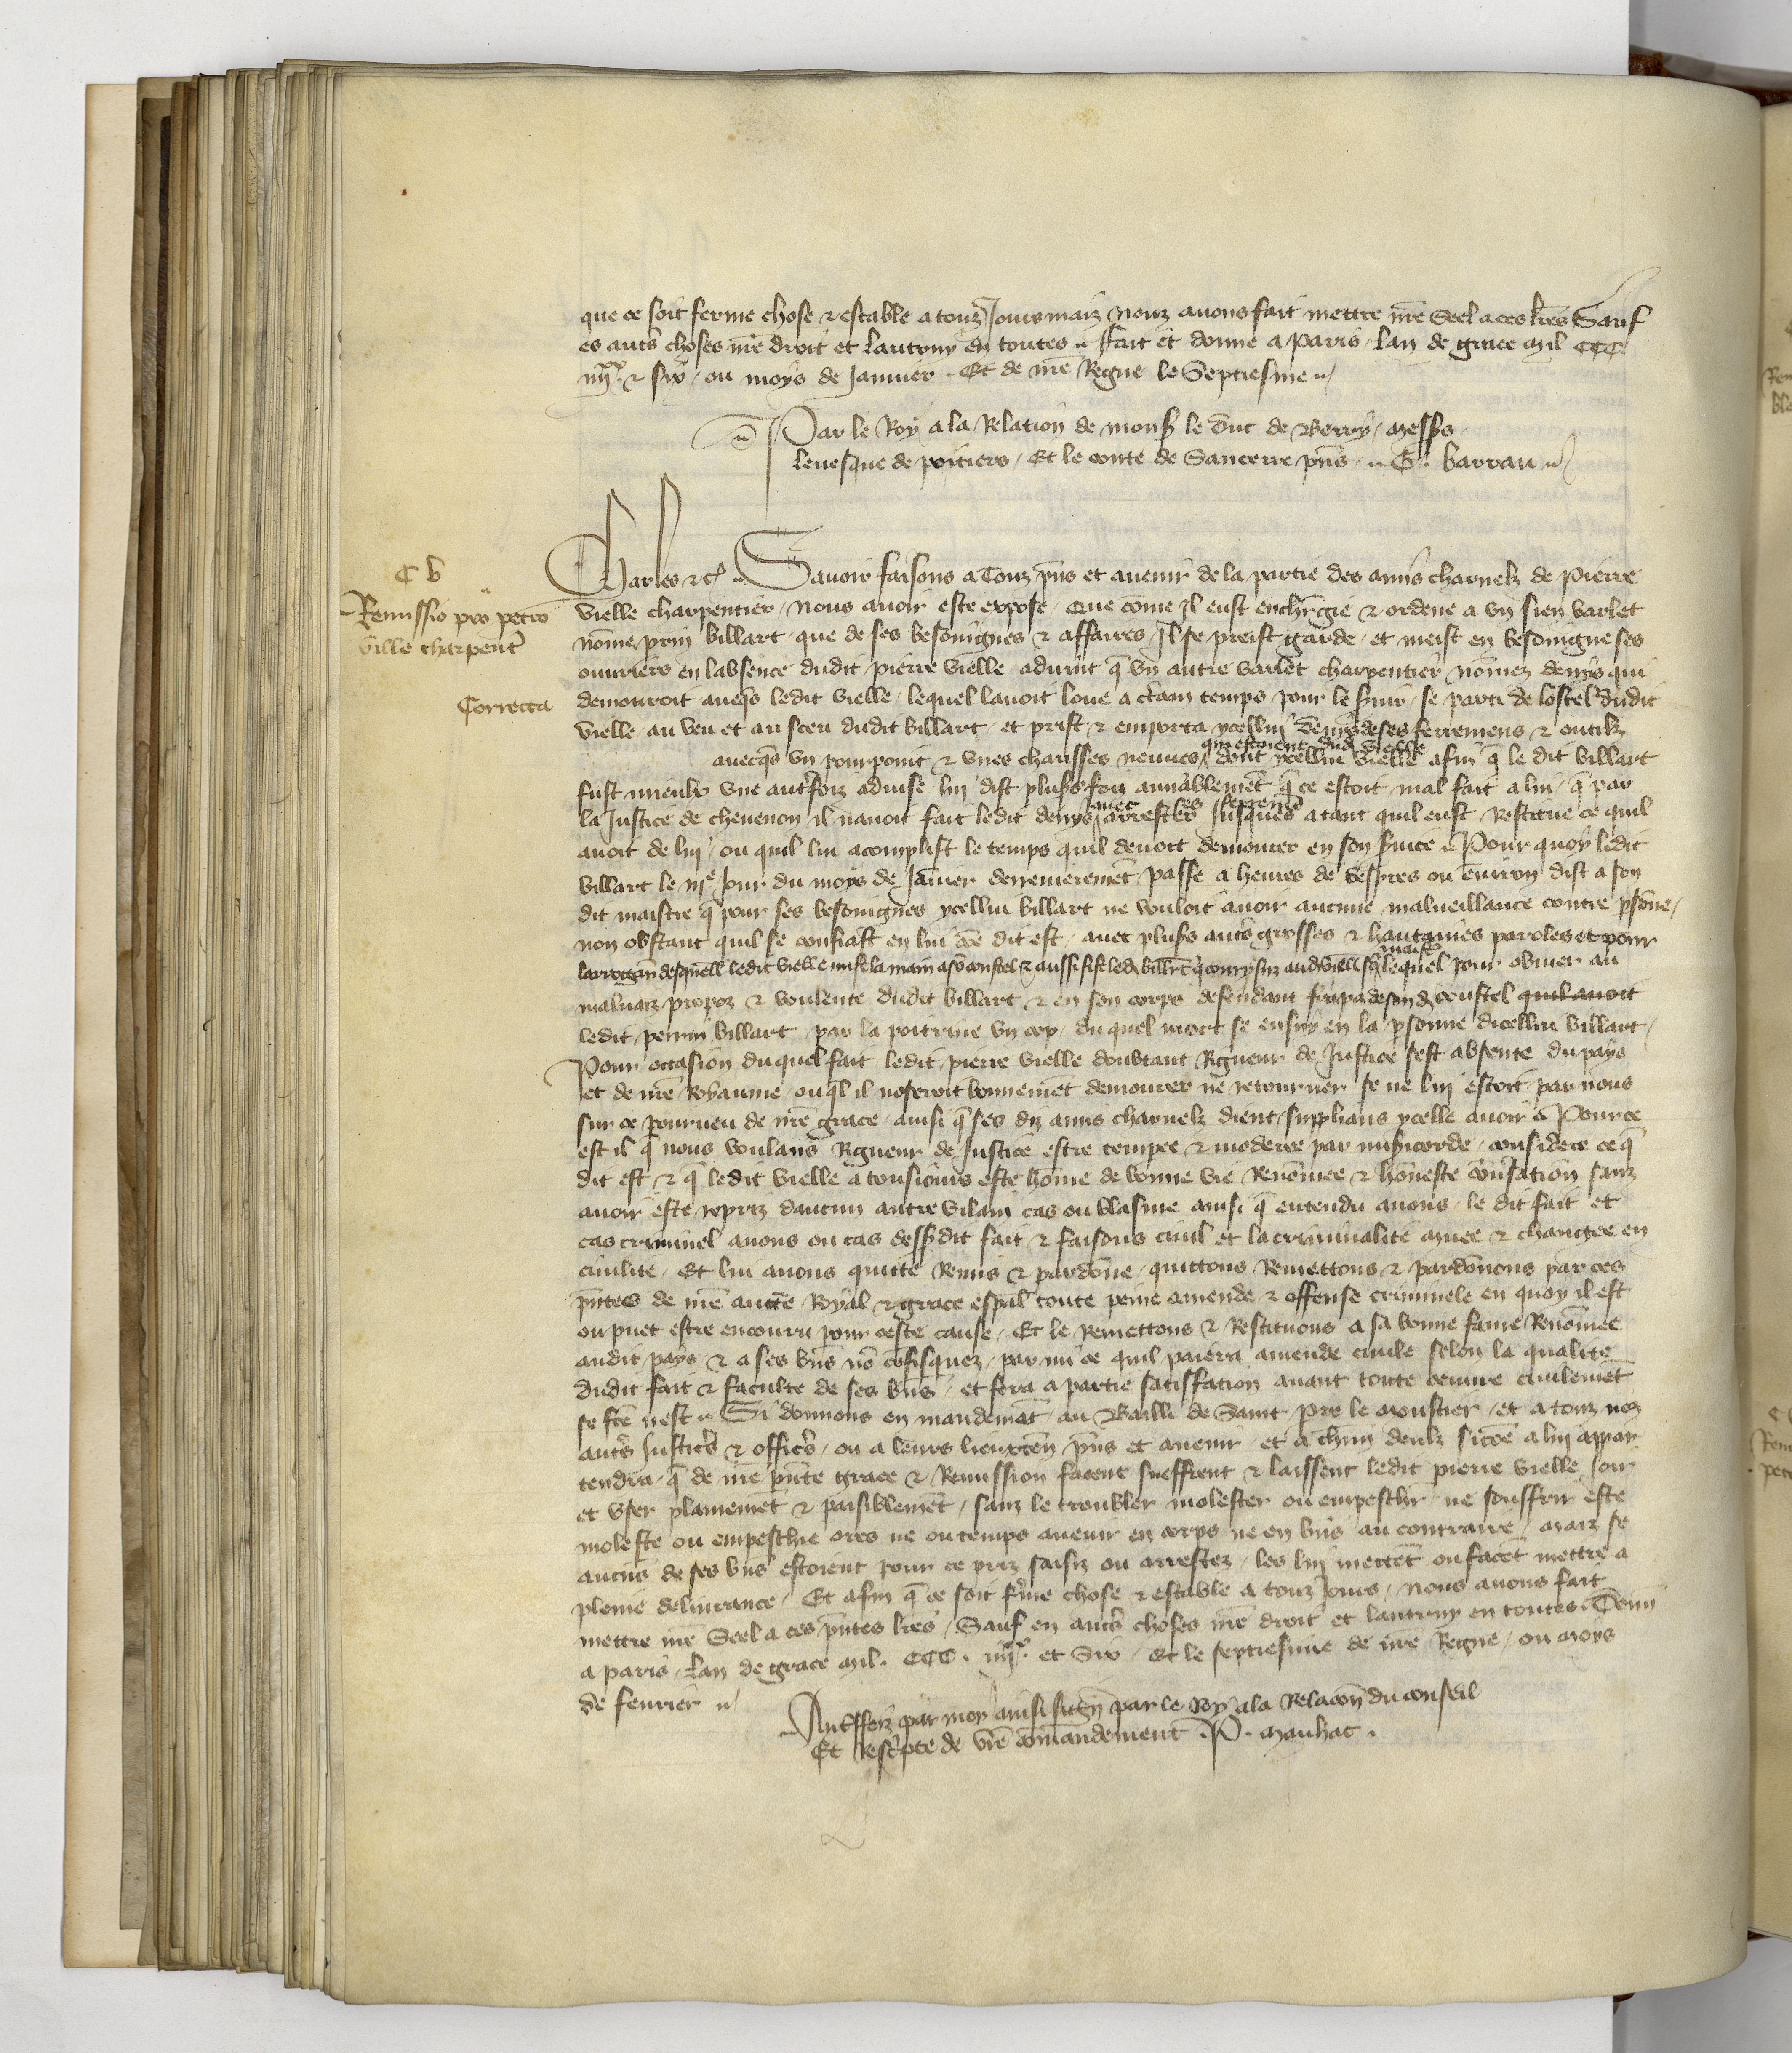 que ce soit ferme chose & estable a touz Jours maiz Nouz avons fait mettre nre Seel a ces lres Sauf
es autres choses nre droit et lautruy en toutes Fait et donne a Paris lan de grace mil CCC
iiijxx & six ou moys de Janvier Et de nre Regne le Septiesme
Par le Roy a la Relation de monsr le Duc de Berry messrs
levesque de poitiers Et le conte de Sancerre pns G. barrau
Charles &c Savoir faisons a Touz pns et avenir de la partie des amis charnelz de Pierre
C V
Remissio pro petro
ville charpent
Correcta
vielle charpentier Nous avoir este expose Que come Il eust enchergie & ordene a un sien varlet
nome prin billart que de ses besoingnes & affaires Il se preist garde et meist en besoingne ses
ouvriers en labsence dudit pierre vielle advint q un autre varlet charpentier nomez denys qui
demouroit avecqs ledit vielle lequel lavoit loue a ctain temps pour le svir se parti de lostel dudit
vielle au veu et au sceu dudit billart et prist & emporta ycellui denys de ses ferremens & outilz
avecqs un pourpoint & unes chausses neuves qui estoient dud vielle dont ycellui vielle afin q le dit billart
fust mieulx une autrefoiz advise lui dist plusrs foiz amiablement q ce estoit mal fait a lui q par
la Justice de chevenon il navoit fait ledit denys arrester Jusques atant quil eust Restitue ce quil
avoit de lui ou quil lui acomplist le temps quil devoit demourer en son svice Pour quoy ledit
billart le iije Jour du moys de Janvier derrenierement passe a heures de vespres ou environ dist a son
dit maistre q pour ses besoingnes ycellui billart ne vouloit avoir aucune malveillance contre psone
non obstant quil se confiast en lui coe dit est avec plusrs autres grosses & hautaines paroles et pour
ledit vielle mist la main a son coustel & aussi fist led billart lequel pour obvier au
malvaiz propoz & voulente dudit billart & en son corps defendant frapa de son d coustel quil avoit
ledit perrin billart par la poitrine un cop duquel mort se ensuy en la psonne dicellui billart
Pour occasion duquel fait ledit pierre vielle doubtant Rigueur de Justice sest absente du pays
et de nre Royaume ouql il noseroit bonnement demourer ne retourner se ne lui estoit par nous
sur ce pourveu de nre grace ainsi q ses diz amis charnelz dient supplians ycelle avoir Pource
est il q nous voulans Rigueur de Justice estre tempee & moderee par misicorde considere ce q
dit est & q ledit vielle a tousiours este home de bonne vie Renomee & honeste convsation sanz
avoir este repriz daucun autre vilain cas ou blasme ainsi q entendu avons le dit fait et
cas criminel avons ou cas dessdit fait & faisons civil et la criminalite muee & changee en
civilite Et lui avons quitte Remis & pardone quittons Remettons & pardonons par ces
pntes de nre autte Royal & grace espal toute peine amende & offense criminele en quoy il est
ou puet estre encouru pour ceste cause Et le Remettons & Restituons a sa bonne fame Renomee
audit pays & a ses bns no cofisquez parmi ce quil paiera amende civile selon la qualite
dudit fait & faculte de ses bns et fera a partie satisfation avant toute euvre civilement
se fte nest Si donnons en mandement au Bailli de Saint pre le moustier et a touz noz
autrs Justicrs & officrs ou a leurs lieuxten pns et avenir et a chun deulz sicoe a lui appar
tendra q de nre pnte grace & Remission facent sueffrent & laissent ledit pierre vielle Joir
et user plainement & paisiblement sanz le troubler molester ou empeschr ne souffrir estre
moleste ou empeschie ores ne ou temps avenir en corps ne en bns au contraire maiz se
aucuns de ses bns estoient pour ce priz saisiz ou arrestez les lui mettet ou facet mettre a
pleine delivrance Et afin q ce soit ferme chose & estable a touz Jours Nous avons fait
mettre nre Seel a ces pntes lres Sauf en autrs choses nre droit et lautruy en toutes Donn
a paris Lan de grace mil. CCC. iiijxx. et Six Et le septiesme de nre Regne ou moys
de fevrier
Autreffoiz par moy ainsi signe par le Roy a la Relacon du conseil
Et Rescpte de vre comandement P. Manhac.